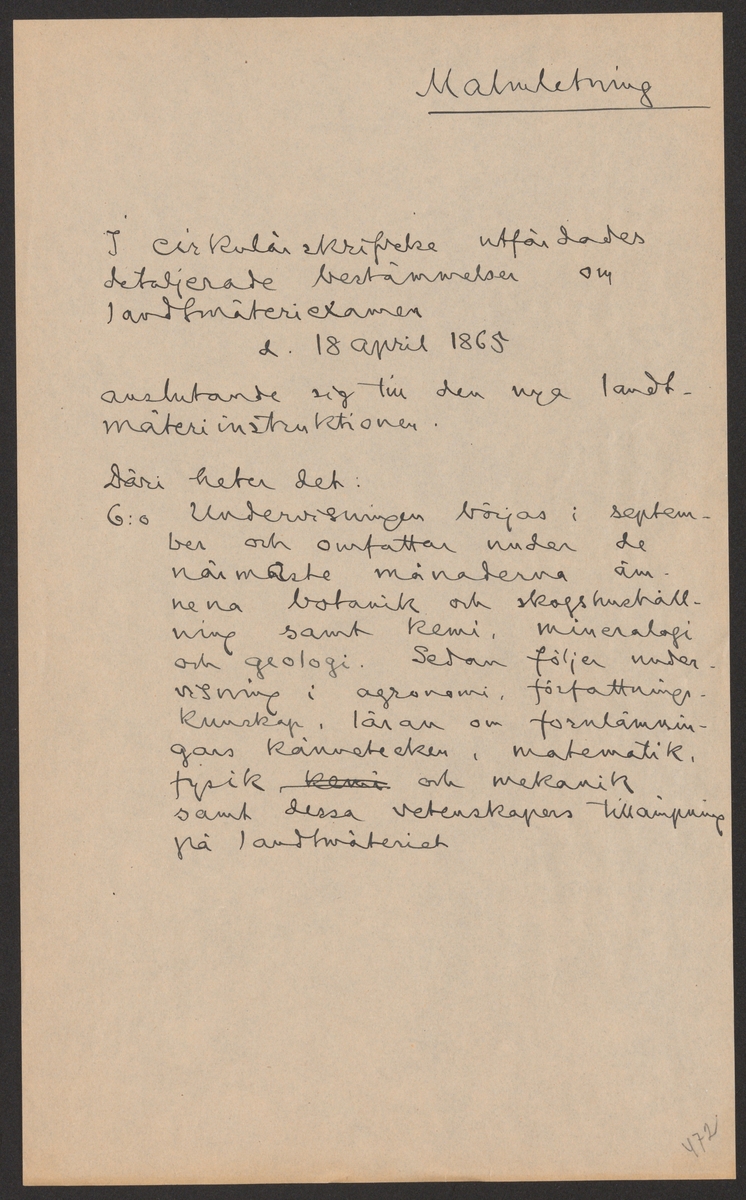 Malmletning
I cirkulärskrifvelse utfärdades
detaljerade bestämmelser om
landtmäteriexamen
d. 18 april 1865
anslutande sig till den nya landt-
mäteriinstruktionen.
Däri heter det:
6:o Undervisningen börjas i septem-
ber och omfattar under de
närmaste månaderna äm-
nena botanik och skogshushåll-
ning samt kemi, mineralogi
och geologi. Sedan följer under-
visning i agronomi, författnings-
kunskap, läran om fornlämnin-
gars kännetecken, matematik,
fysik, kemi och mekanik
samt dessa vetenskapers tillämpning
på landtmäteriet
472